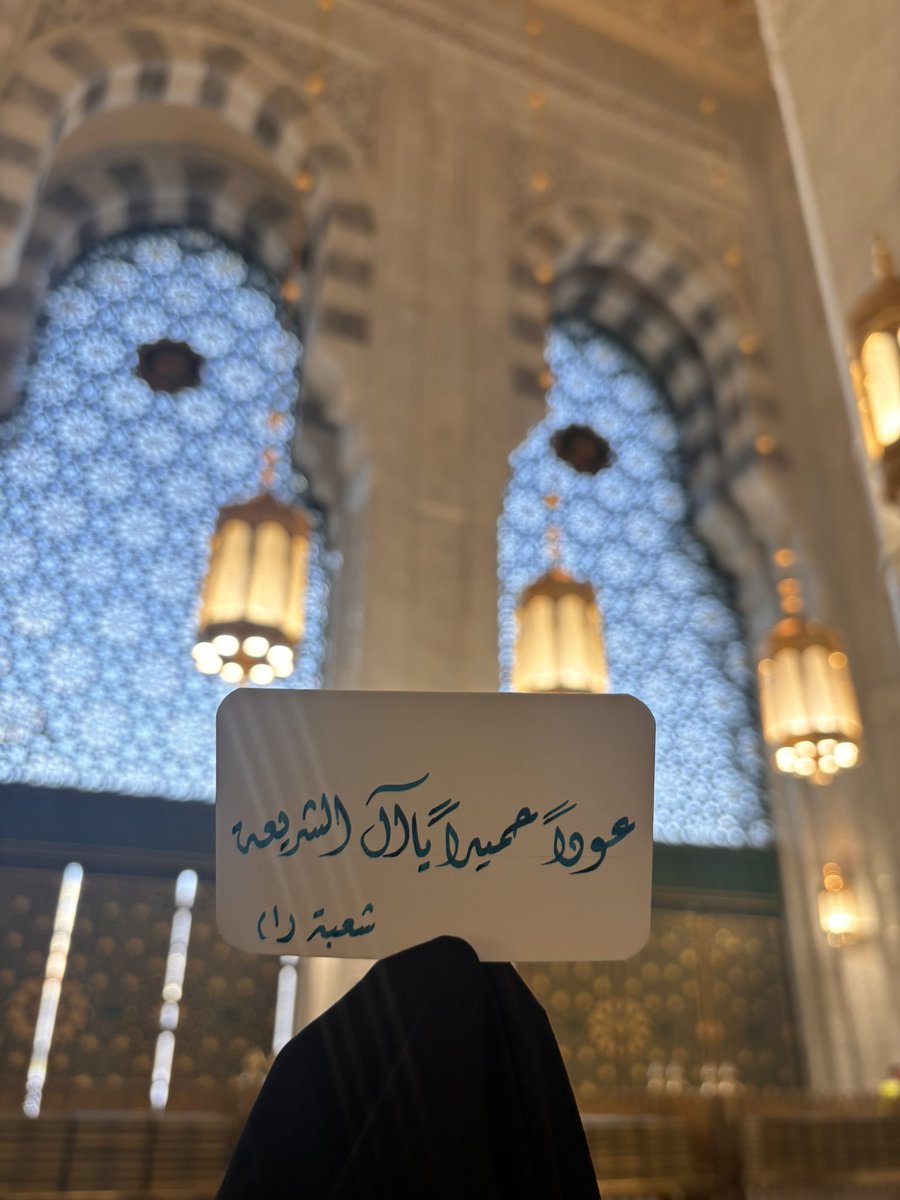 عوداً حميداً ياآل الشريعة
شعبة دام